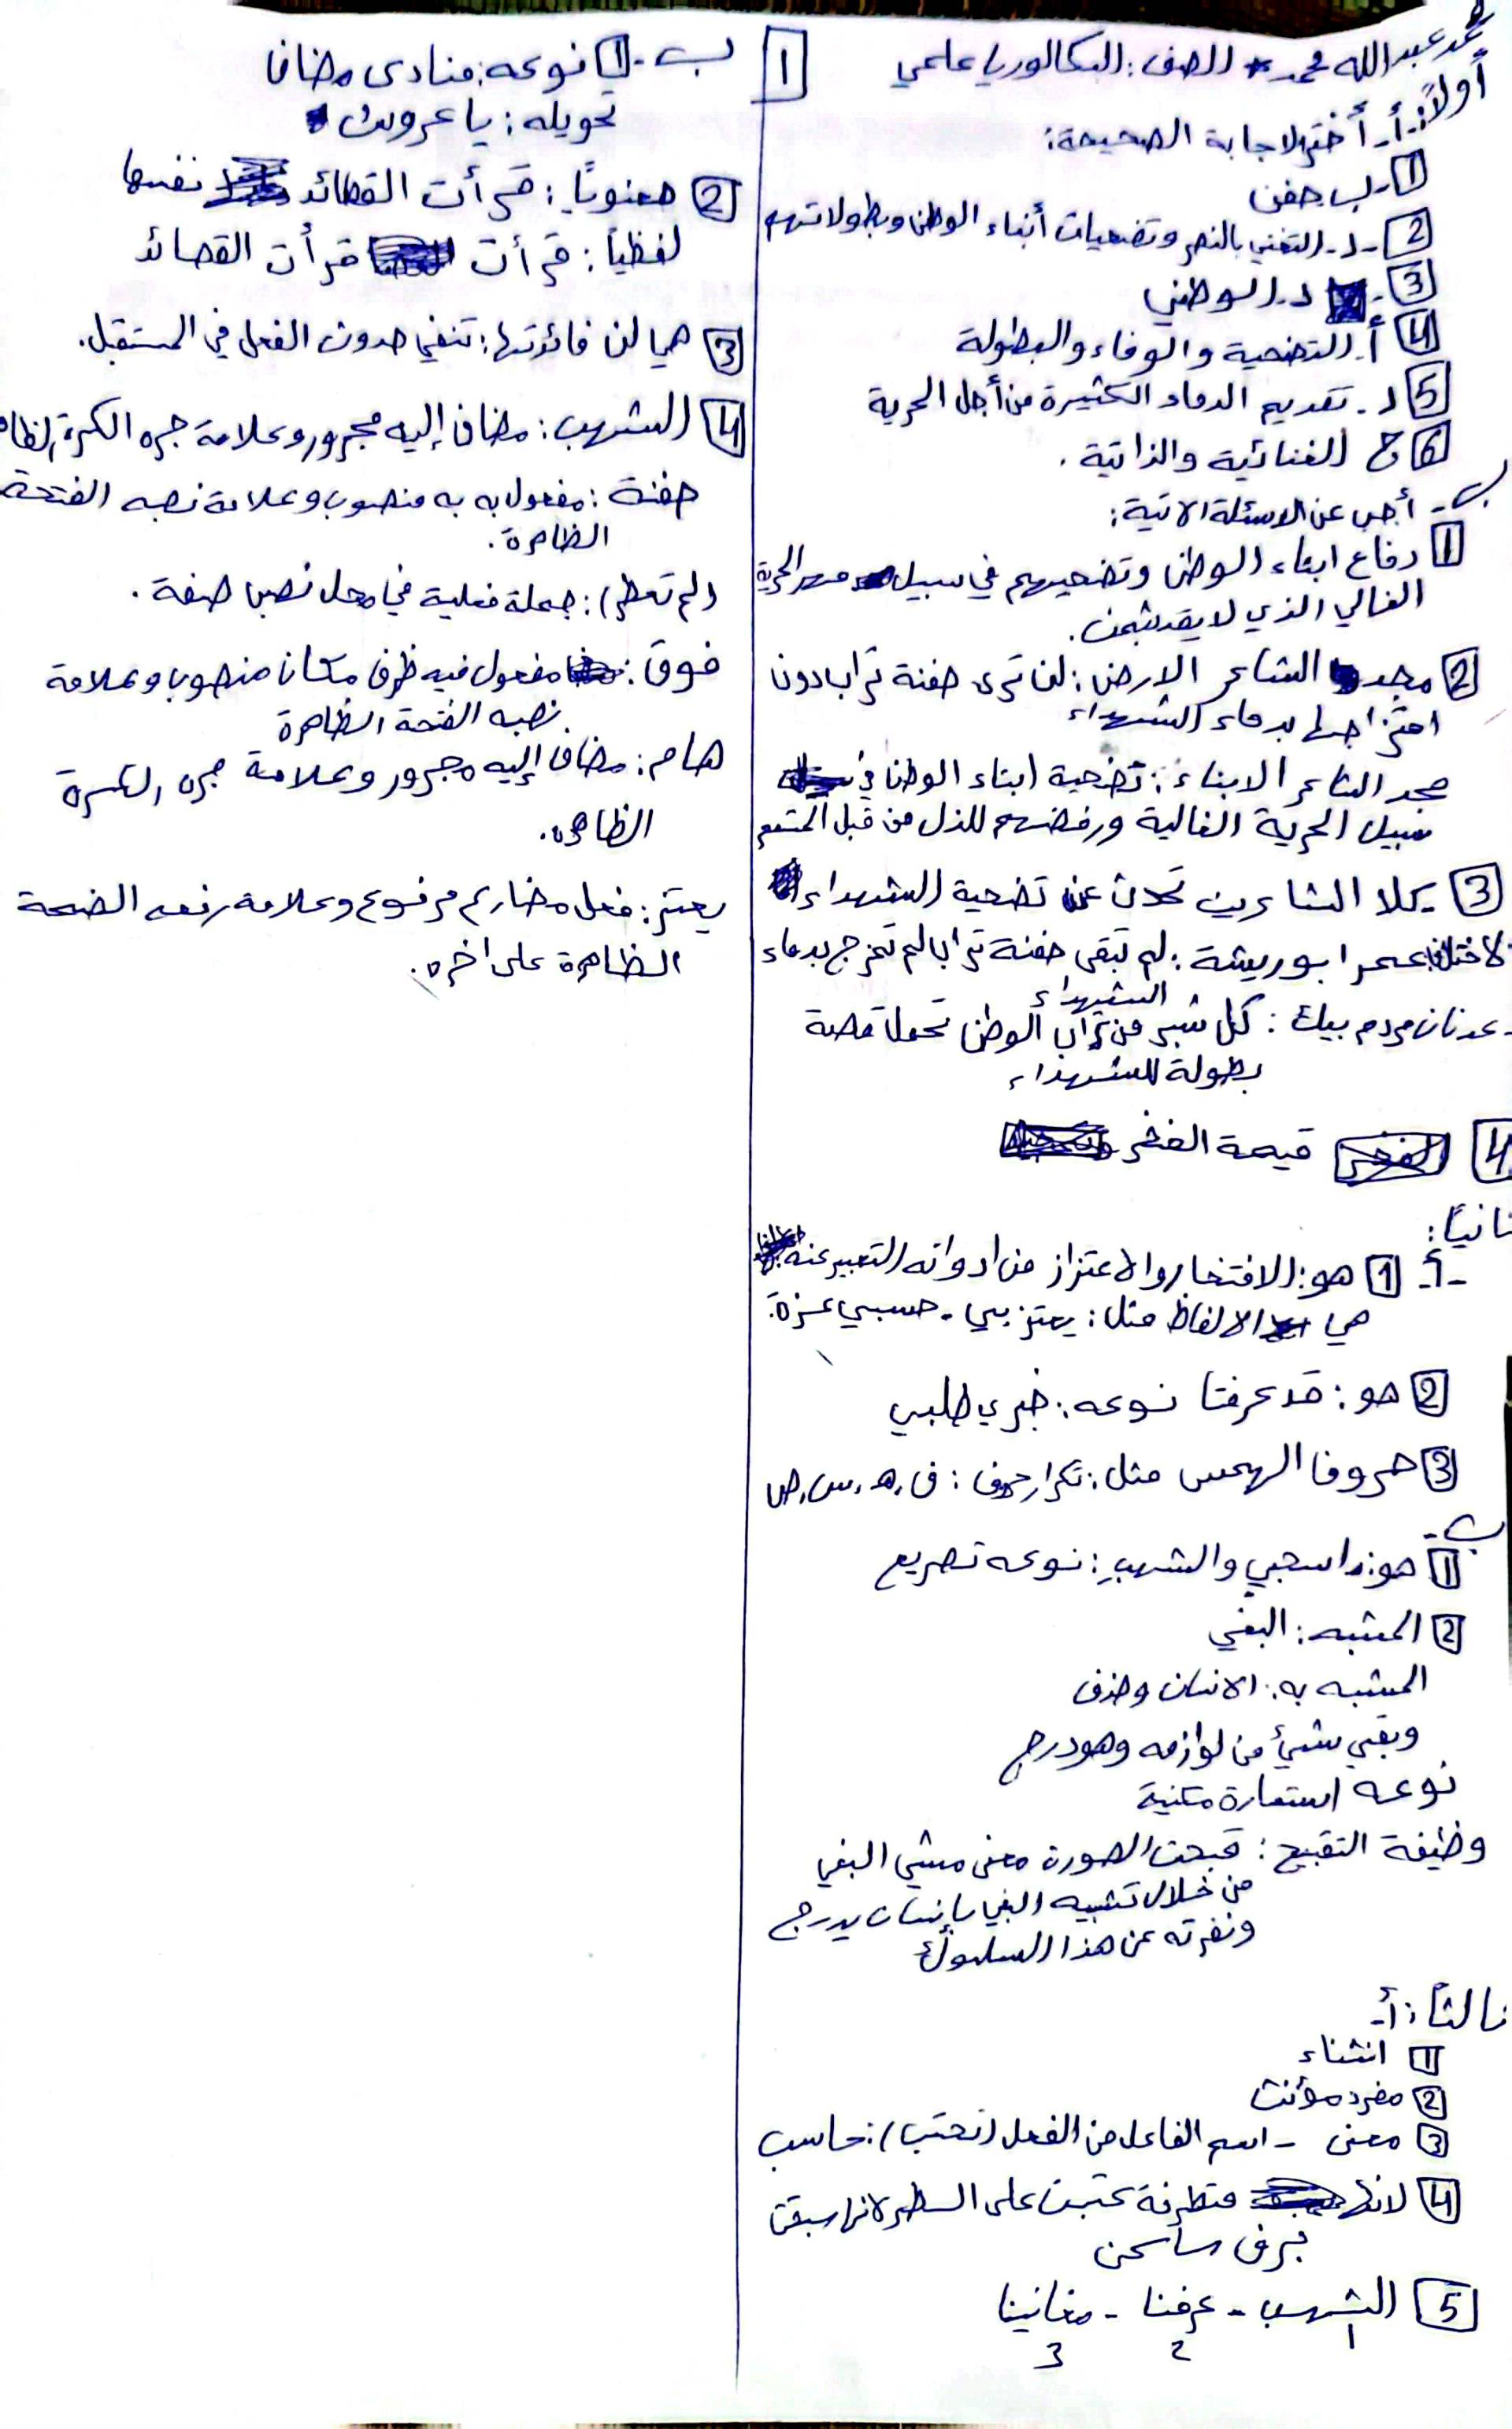 محمد عبد الله محمد * الصف: البكالوريا علمي
1
أولاً: أ- أختر الاجابة الصحيحة:
1 - ب. جفن
2 - د - التغني بالنصر وتضحيات أبناء الوطن وبطولاتهم
3 - د. الوطني
4 أ. التضحية والوفاء والبطولة
5 د - تقديم الدماء الكثيرة من أجل الحرية
6 ج الغنائية والذاتية .
ب - أجب عن الاسئلة الاتية:
1 دفاع ابناء الوطن وتضحيهم في سبيل مهر الحرية
الغالي الذي لا يقدر بثمن.
2 مجد الشاعر الارض: لن ترى حفنة ترابا دون
امتزاجها بدماء الشهداء
مجد الشاعر الابناء: تضحية ابناء الوطن في
سبيل الحرية الغالية ورفضهم للذل من قبل
3 - كلا الشاعرين تحدث عن تضحية الشهداء
الاختلاف: عمر ابو ريشة: لم تبقى حفنة ترابا لم تمزج بدماء
الشهداء
- عدنان مردم بيك: كل شبر من تراب الوطن تحمل قصة
بطولة للشهداء
4 قيمة الفخر
ثانياً:
- أ- 1 هو: الافتخار والاعتزاز من ادواته التعبير عنه
هي الالفاظ مثل: يعتز بي - حسبي عزة.
2 هو: قد عرفتا نوعه: خبري طلبي
3 حروف الهمس مثل: تكرار حروف: ف, ه, س, ص
ب-
1 هو: اسحبي والشهبِ: نوعه تصريع
2 المشبه: البغي
المشبه به: الانسان وحذف
وبقي شيئ من لوازمه وهو درج
نوعه استعارة مكنية
وظيفة التقبيح: قبحت الصورة معنى مشي البغي
من خلال تشبيه البغي بإنسان يدرج
ونفرته عن هذا السلوك
ثالثاً: أ-
1 انشاء
2 مفرد مؤنث
3 معنى - اسم الفاعل من الفعل (نحتسب): حاسب
4 لانها متطرفة كتبت على السطر لانها سبقت
بحرف ساكن
5 الشهب - عرفنا - مغانينا
1 2 3
ب - 1 نوعه: منادى مضاف
تحويله: يا عروسُ
2 معنوياً: قرأت القصائد نفسها
لفظياً: قرأت قرأت القصائد
3 هي لن فائدتها: تنفي حدوث الفعل في المستقبل.
4 الشهب: مضاف إليه مجرور وعلامة جره الكسرة الظاه
حفنة: مفعول به به منصوب وعلامة نصبه الفتحة
الظاهرة.
(لم تعطر): جملة فعلية في محل نصب صفة.
فوق: مفعول فيه ظرف مكان منصوب وعلامة
نصبه الفتحة الظاهرة
هام: مضاف إليه مجرور وعلامة جره الكسرة
الظاهره.
يعتز: فعل مضارع مرفوع وعلامة رفعه الضمة
الظاهرة على اخره.